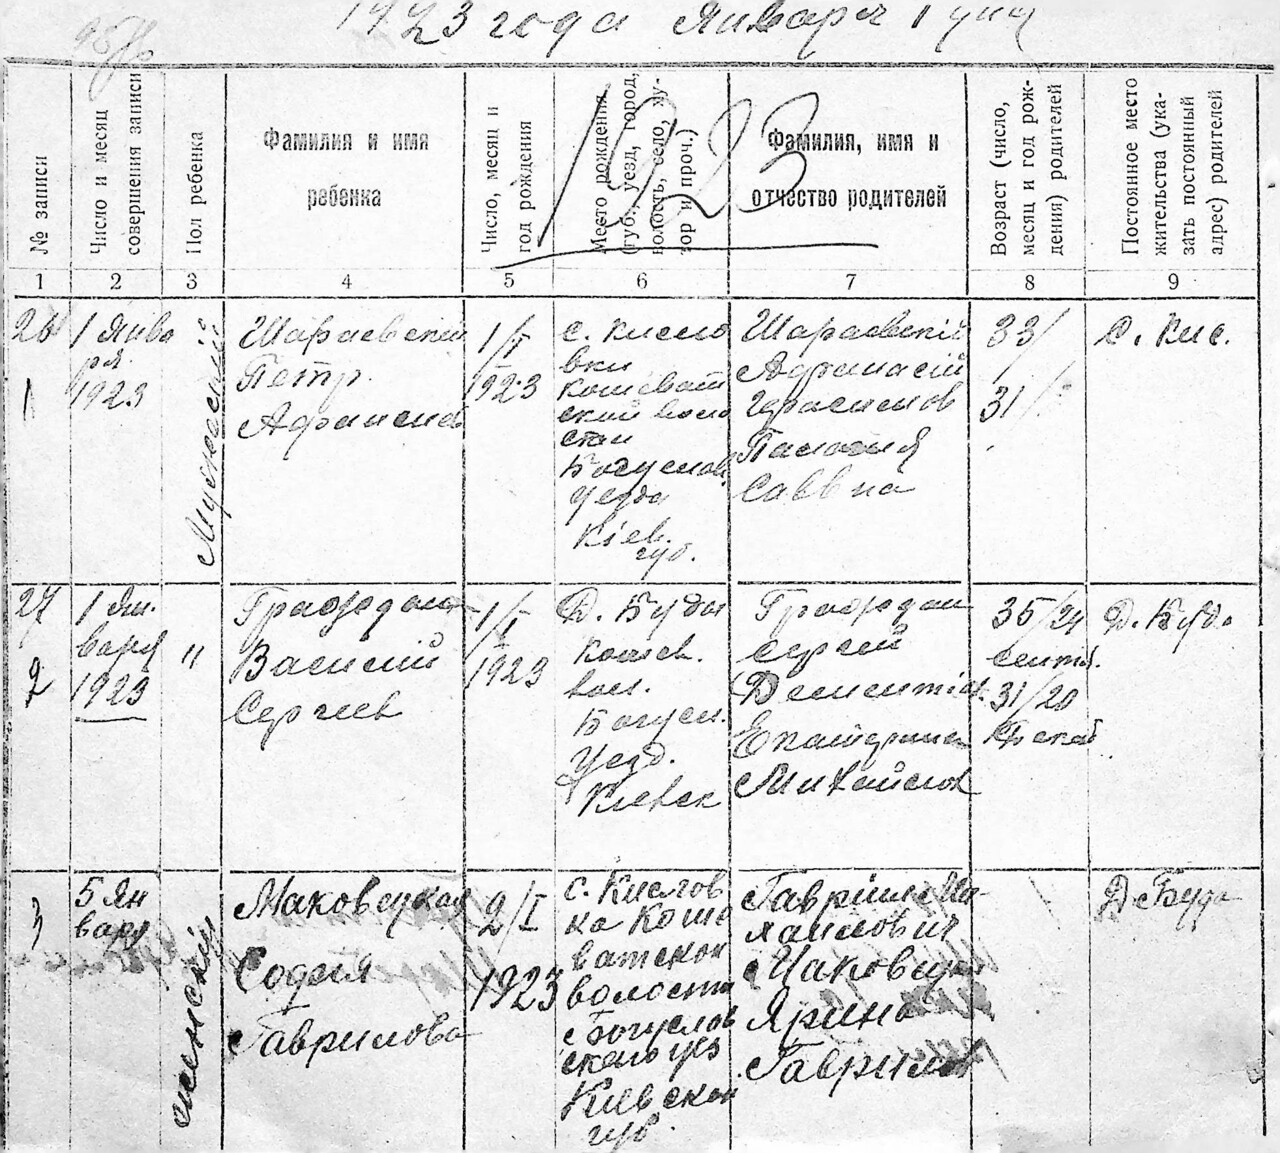 1923 года Января 1 дня
1923
№ записи
Число и месяц
совершения записи
Пол ребенка
Фамилия и имя
ребенка
Число, месяц и
год рождения
Место рождения
(губ., уезд, город,
волость, село, ху-
тор и проч.)
Фамилия, имя и
отчество родителей
Возраст (число,
месяц и год рож-
дения) родителей
Постоянное место
жительства (ука-
зать постоянный
адрес) родителей
1 2 3 4 5 6 7 8 9
26
1
1 Янва
ря
1923
Мужеский
Шараевский
Петр
1/I
1923
с. Кисло
вки
Кошеват
ской воло
сти
Богуслов.
уезда
Кіев.
губ.
Шараевскій
Афанасій
Герасимов
Саввна
33/
31/
С. Кис.
27
2
1 Ян.
варя
1923
"
Василий
Сергеев
1/I
1923
Д. Буды
Кошев.
вол.
Богусл.
Уезд.
Киевск
Сергей
Дементіев.
Екатерина
Михайлов
35/24
сентя.
31/20
Д. Буда
3
5 Ян
варя
женский
Маковецкая
Софія
Гаврилова
2/I
1923
с. Кислов
ка Коше
ватской
волости
Богуслов
ского уез
Киевской
губ.
Маковецкий
Ярина
Гаврилов
Д Буда